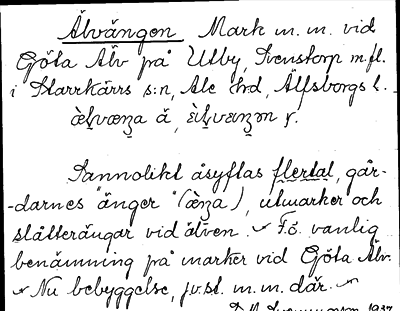 Älvängen Mark m.m. vid
Göta Älv på Utby, Svenstorp m.fl.
i Starrkärrs s:n, Ale hrd, Älfsborgs l.
Sannolikt åsyftas flertal, går-
-darnes "änger" (), utmarker och
slåtterängar vid älven. F.ö. vanlig
benämning på marker vid Göta Älv.
Nu bebyggelse, jv.st. m.m. där.
1937